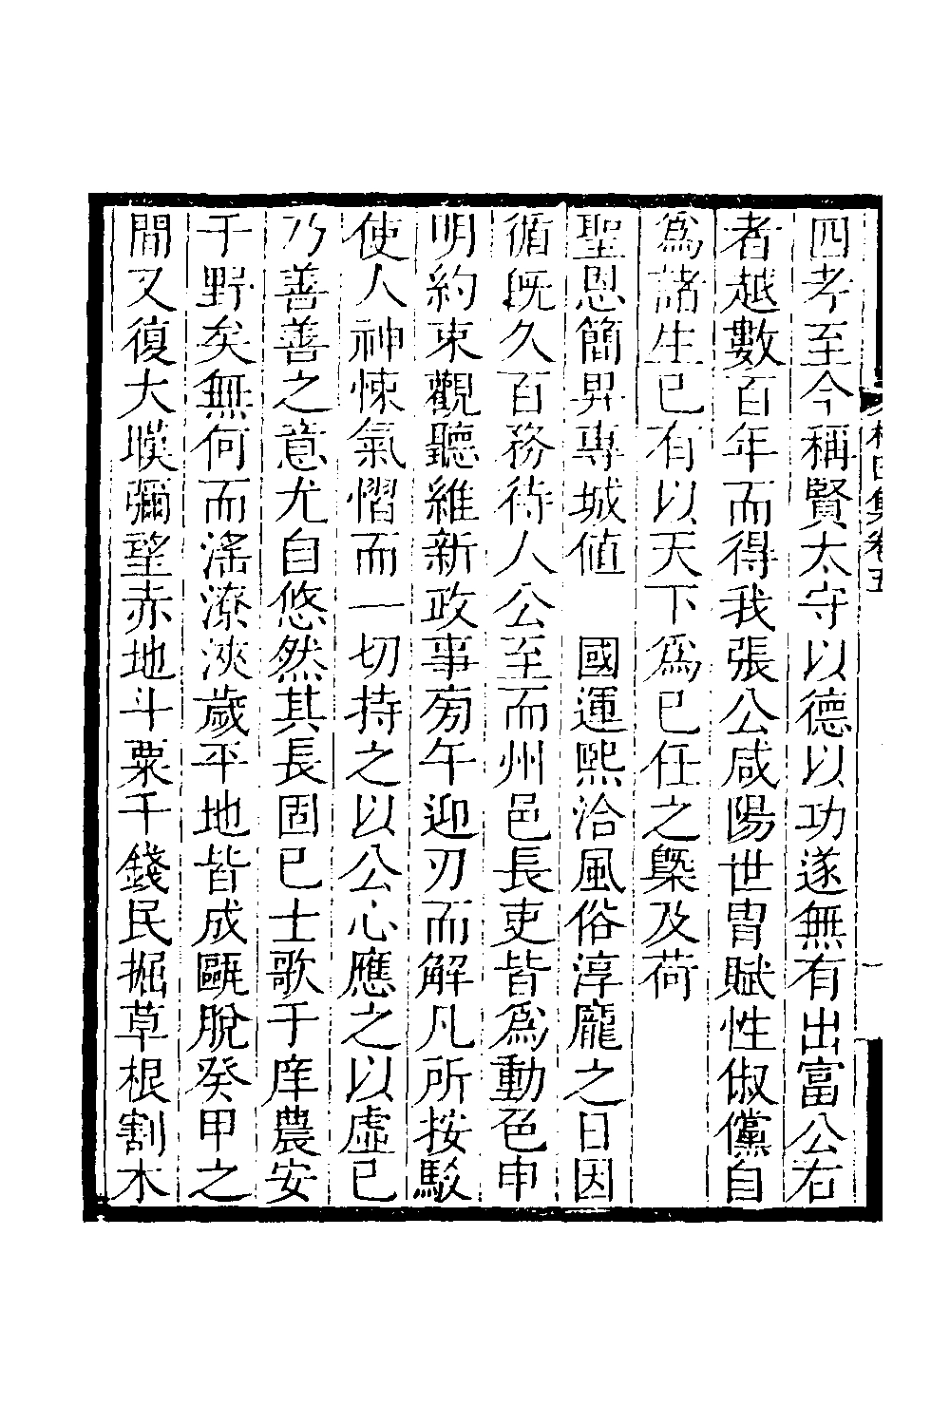 四考至今稱賢太守以德以功遂無有出富公右
者越數百年而得我張公咸陽世冑賦性俶儻自
為諸生已有以天下為已任之槩及荷
聖恩簡昇專城値　國運熙洽風俗淳龐之日因
循旣久百務待人公至而州邑長吏皆為動色申
明約束觀聽維新政事旁午迎刃而解凡所按駁
使人神悚氣慴而一切持之以公心應之以虛已
乃善善之意尤自悠然其長固已士歌于庠農安
于野矣無何而滛潦浹歲平地皆成甌脫癸甲之
間又復大暵彌望赤地斗粟千錢民掘草根割木
田集卷五